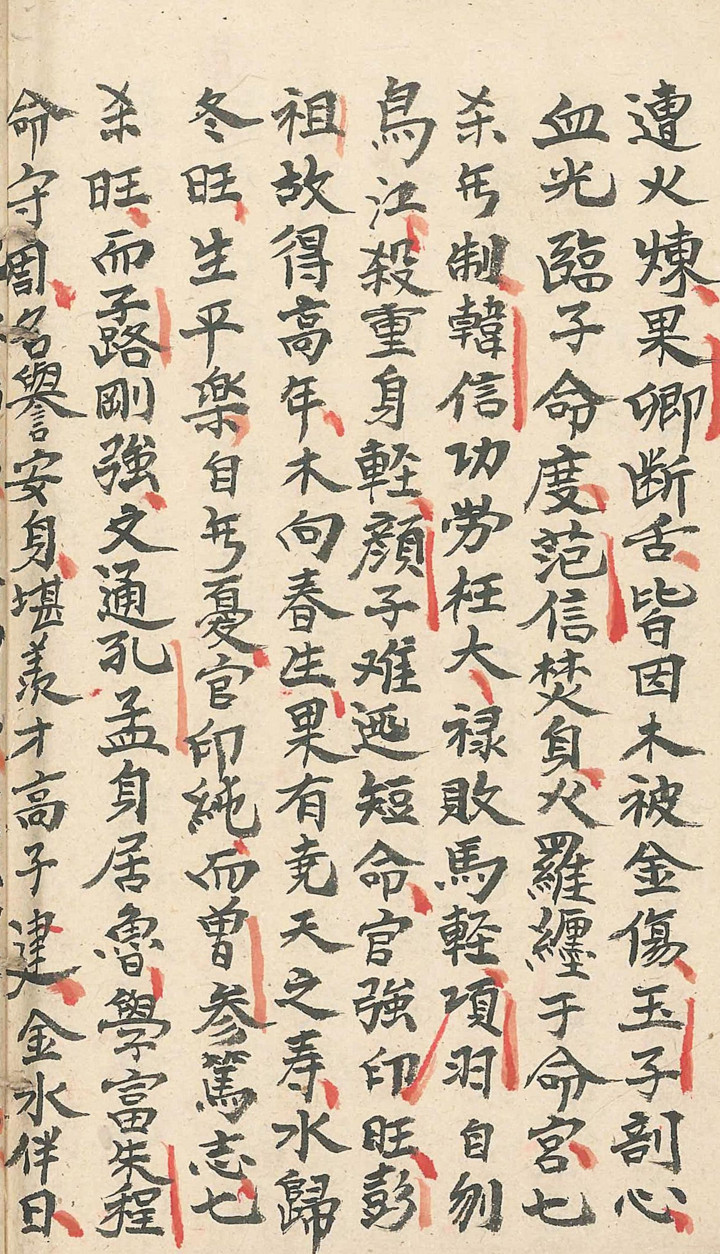 遭火煉果卿断舌皆因木被金傷玉子剖心
血光臨子命度范信焚身火羅纏于命宮七
杀兮制韓信功勞枉大禄敗馬軽項羽自刎
烏江殺重身軽顔子难迯短命官強印旺彭
祖故得高年木向春生果有尭天之寿水歸
冬旺生平楽自兮憂官印純而曽参篤志七
杀旺而子路剛強文通孔孟身居魯學富朱程
命守周名譽安身堪羨才高子建金水伴日